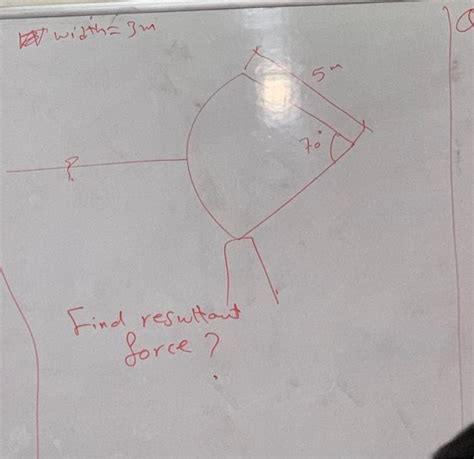 width = 3m
5 m
70°
Find resultant
force?